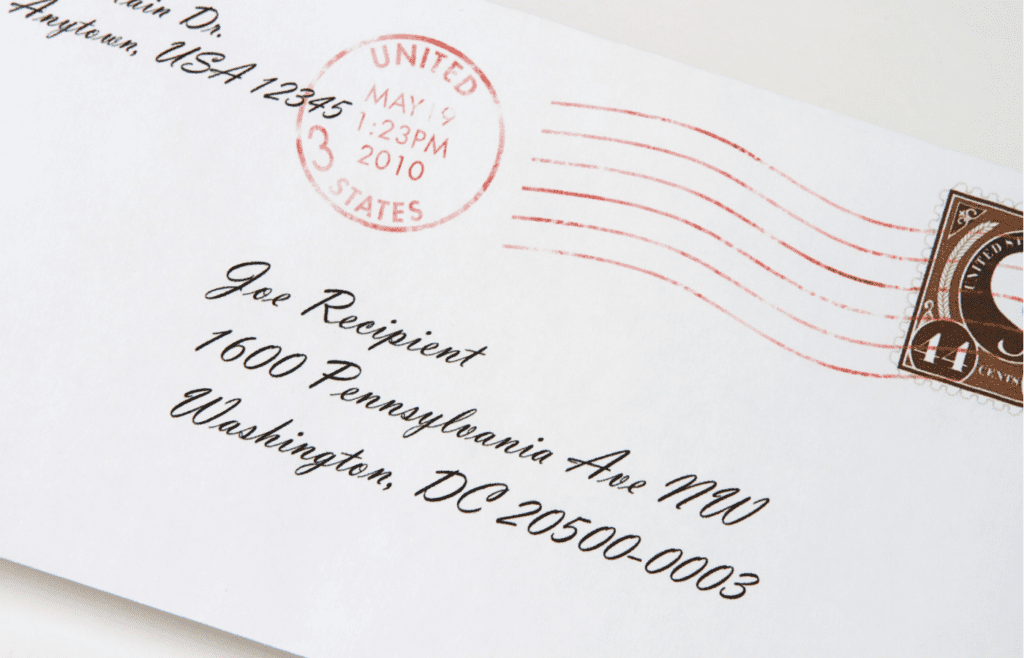 ain Dr.
Anytown, USA 12345
UNITED
MAY 19
1:23PM
2010
3
STATES
Joe Recipient
1600 Pennsylvania Ave NW
Washington, DC 20500-0003
UNITED ST
44
CENTS